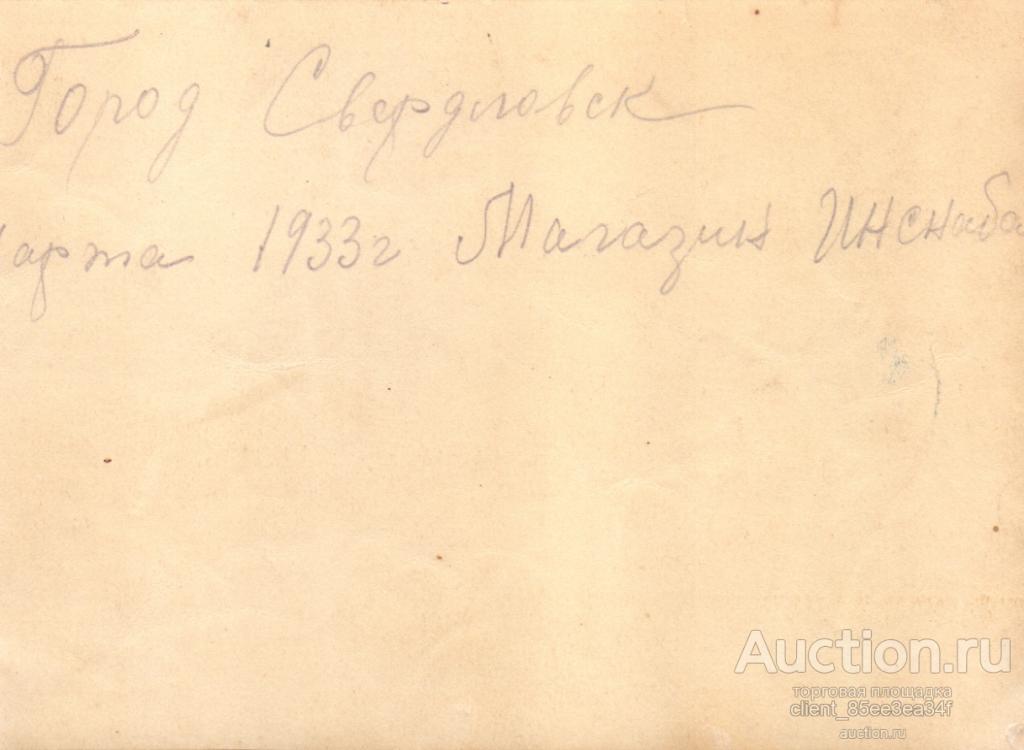 Город Свердловск
марта 1933г Магазин Инснаба
Auction.ru
торговая площадка
client_85ee3ea34f
auction.ru